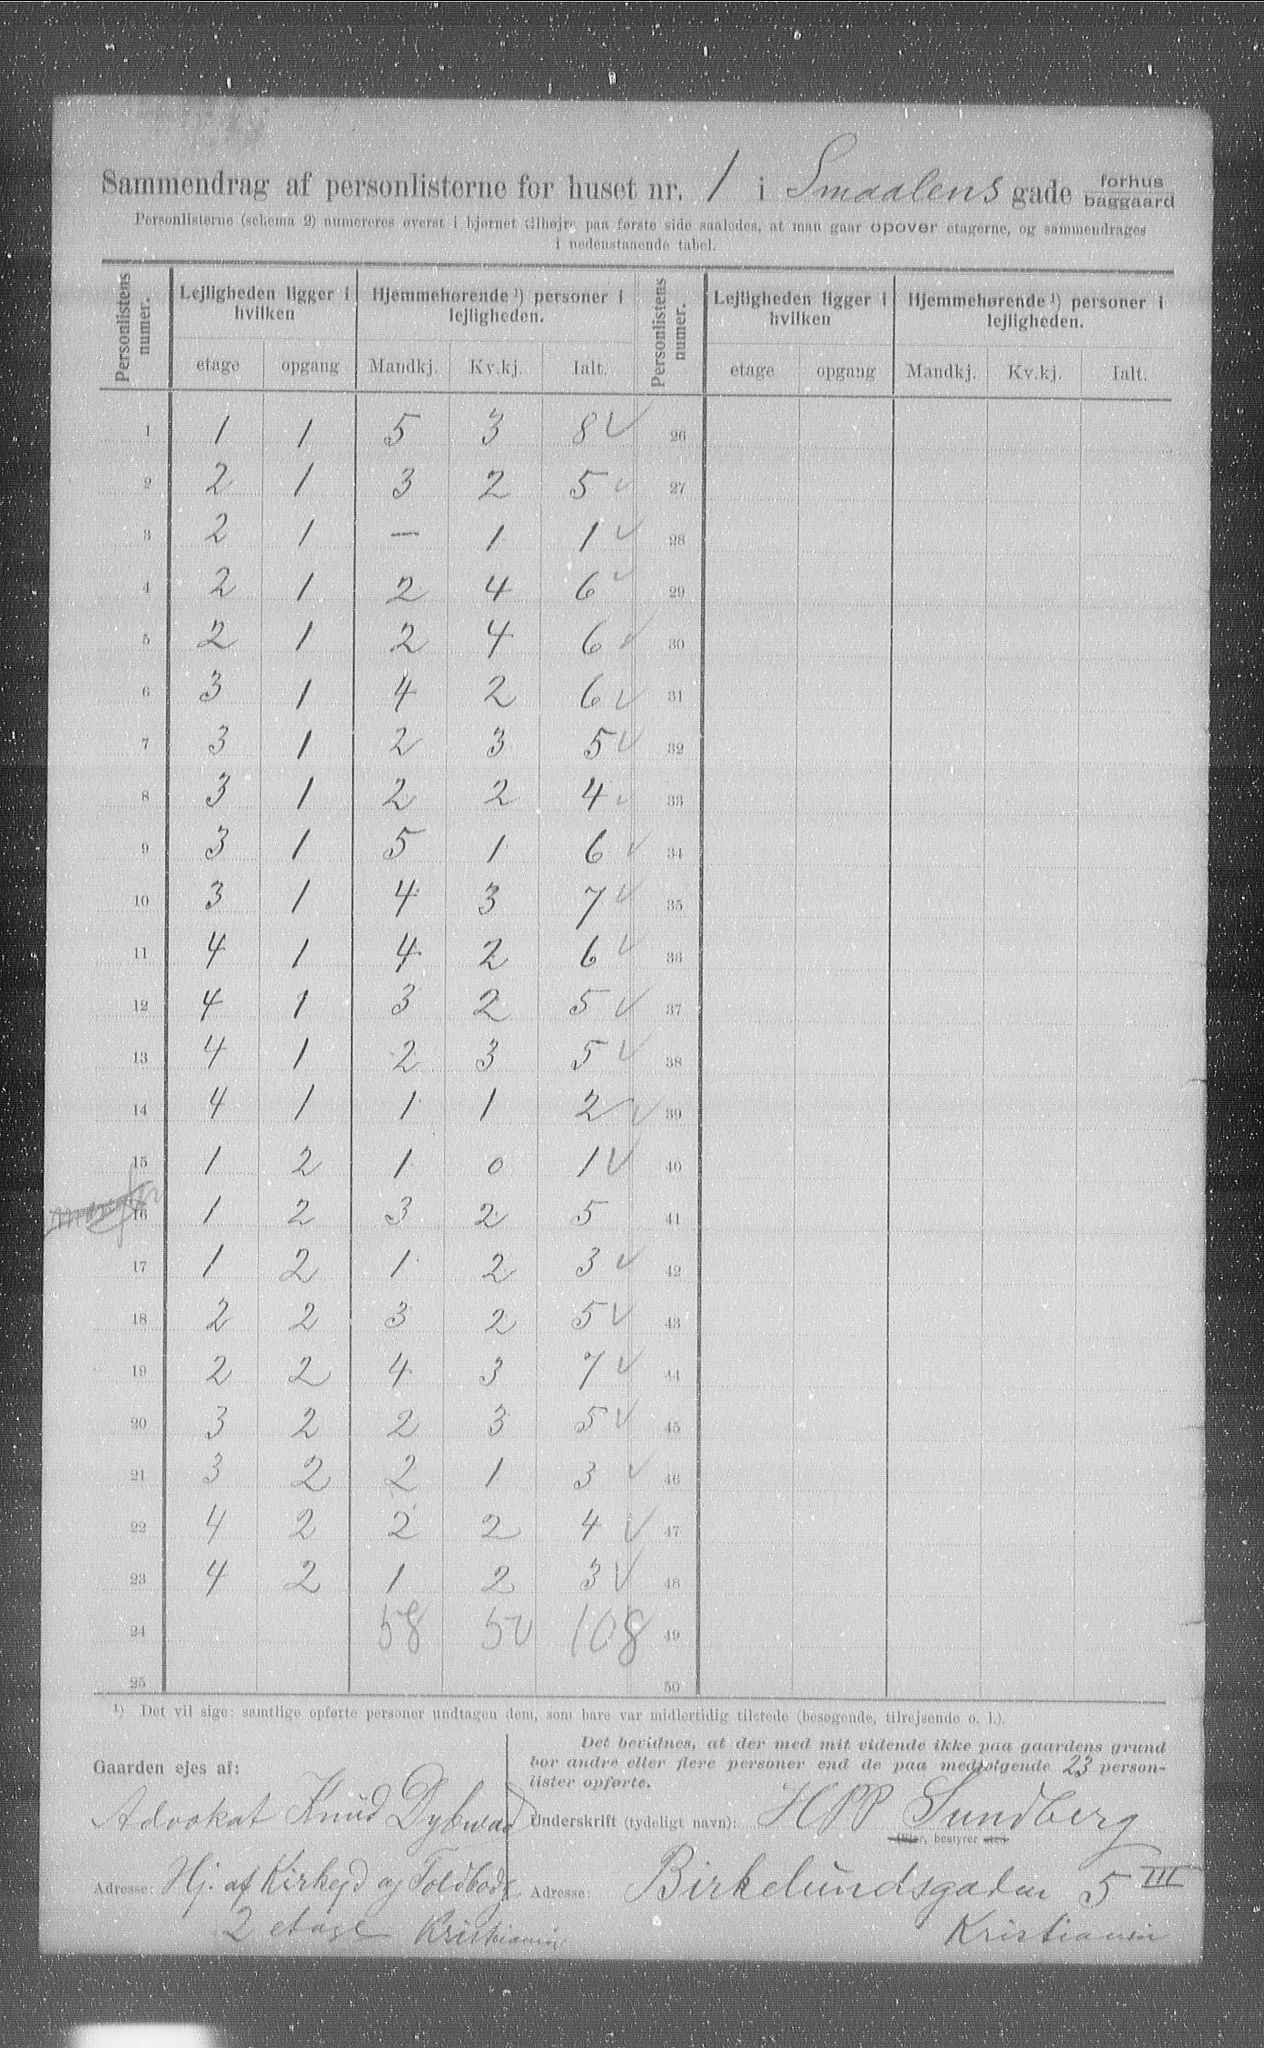 Sammendrag af personlisterne for huset nr. 1 i Smaalens gade forhus baggaard
Personlisterne (schema 2) numereres øverst i hjørnet tilhøjre paa første side saaledes, at man gaar opover etagerne, og sammendrages
i nedenstaaende tabel.
Personlistens numer. Lejligheden ligger i hvilken Hjemmehørende ¹) personer i lejligheden. Personlistens numer. Lejligheden ligger i hvilken Hjemmehørende ¹) personer i lejligheden.
etage opgang Mandkj. Kv.kj. Ialt. etage opgang Mandkj. Kv.kj. Ialt.
1 1 1 5 3 8 ✓ 26
2 2 1 3 2 5 ✓ 27
3 2 1 — 1 1 ✓ 28
4 2 1 2 4 6 ✓ 29
5 2 1 2 4 6 ✓ 30
6 3 1 4 2 6 ✓ 31
7 3 1 2 3 5 ✓ 32
8 3 1 2 2 4 ✓ 33
9 3 1 5 1 6 ✓ 34
10 3 1 4 3 7 ✓ 35
11 4 1 4 2 6 ✓ 36
12 4 1 3 2 5 ✓ 37
13 4 1 2 3 5 ✓ 38
14 4 1 1 1 2 ✓ 39
15 1 2 1 0 1 ✓ 40
16 1 2 3 2 5 41
17 1 2 1 2 3 ✓ 42
18 2 2 3 2 5 ✓ 43
19 2 2 4 3 7 ✓ 44
20 3 2 2 3 5 ✓ 45
21 3 2 2 1 3 ✓ 46
22 4 2 2 2 4 ✓ 47
23 4 2 1 2 3 ✓ 48
24 58 50 108 49
25 50
¹) Det vil sige: samtlige opførte personer undtagen dem, som bare var midlertidig tilstede (besøgende, tilrejsende o. l.).
Gaarden ejes af:
Advokat Knud Dybwad
Adresse: Hj. af Kirkegd og Toldbodg
2 etage Kristiania
Det bevidnes, at der med mit vidende ikke paa gaardens grund
bor andre eller flere personer end de paa medfølgende 23 person-
lister opførte.
Underskrift (tydeligt navn): HPP Sundberg
Ejer, bestyrer etc.
Adresse: Birkelundsgaden 5 III
Kristiania